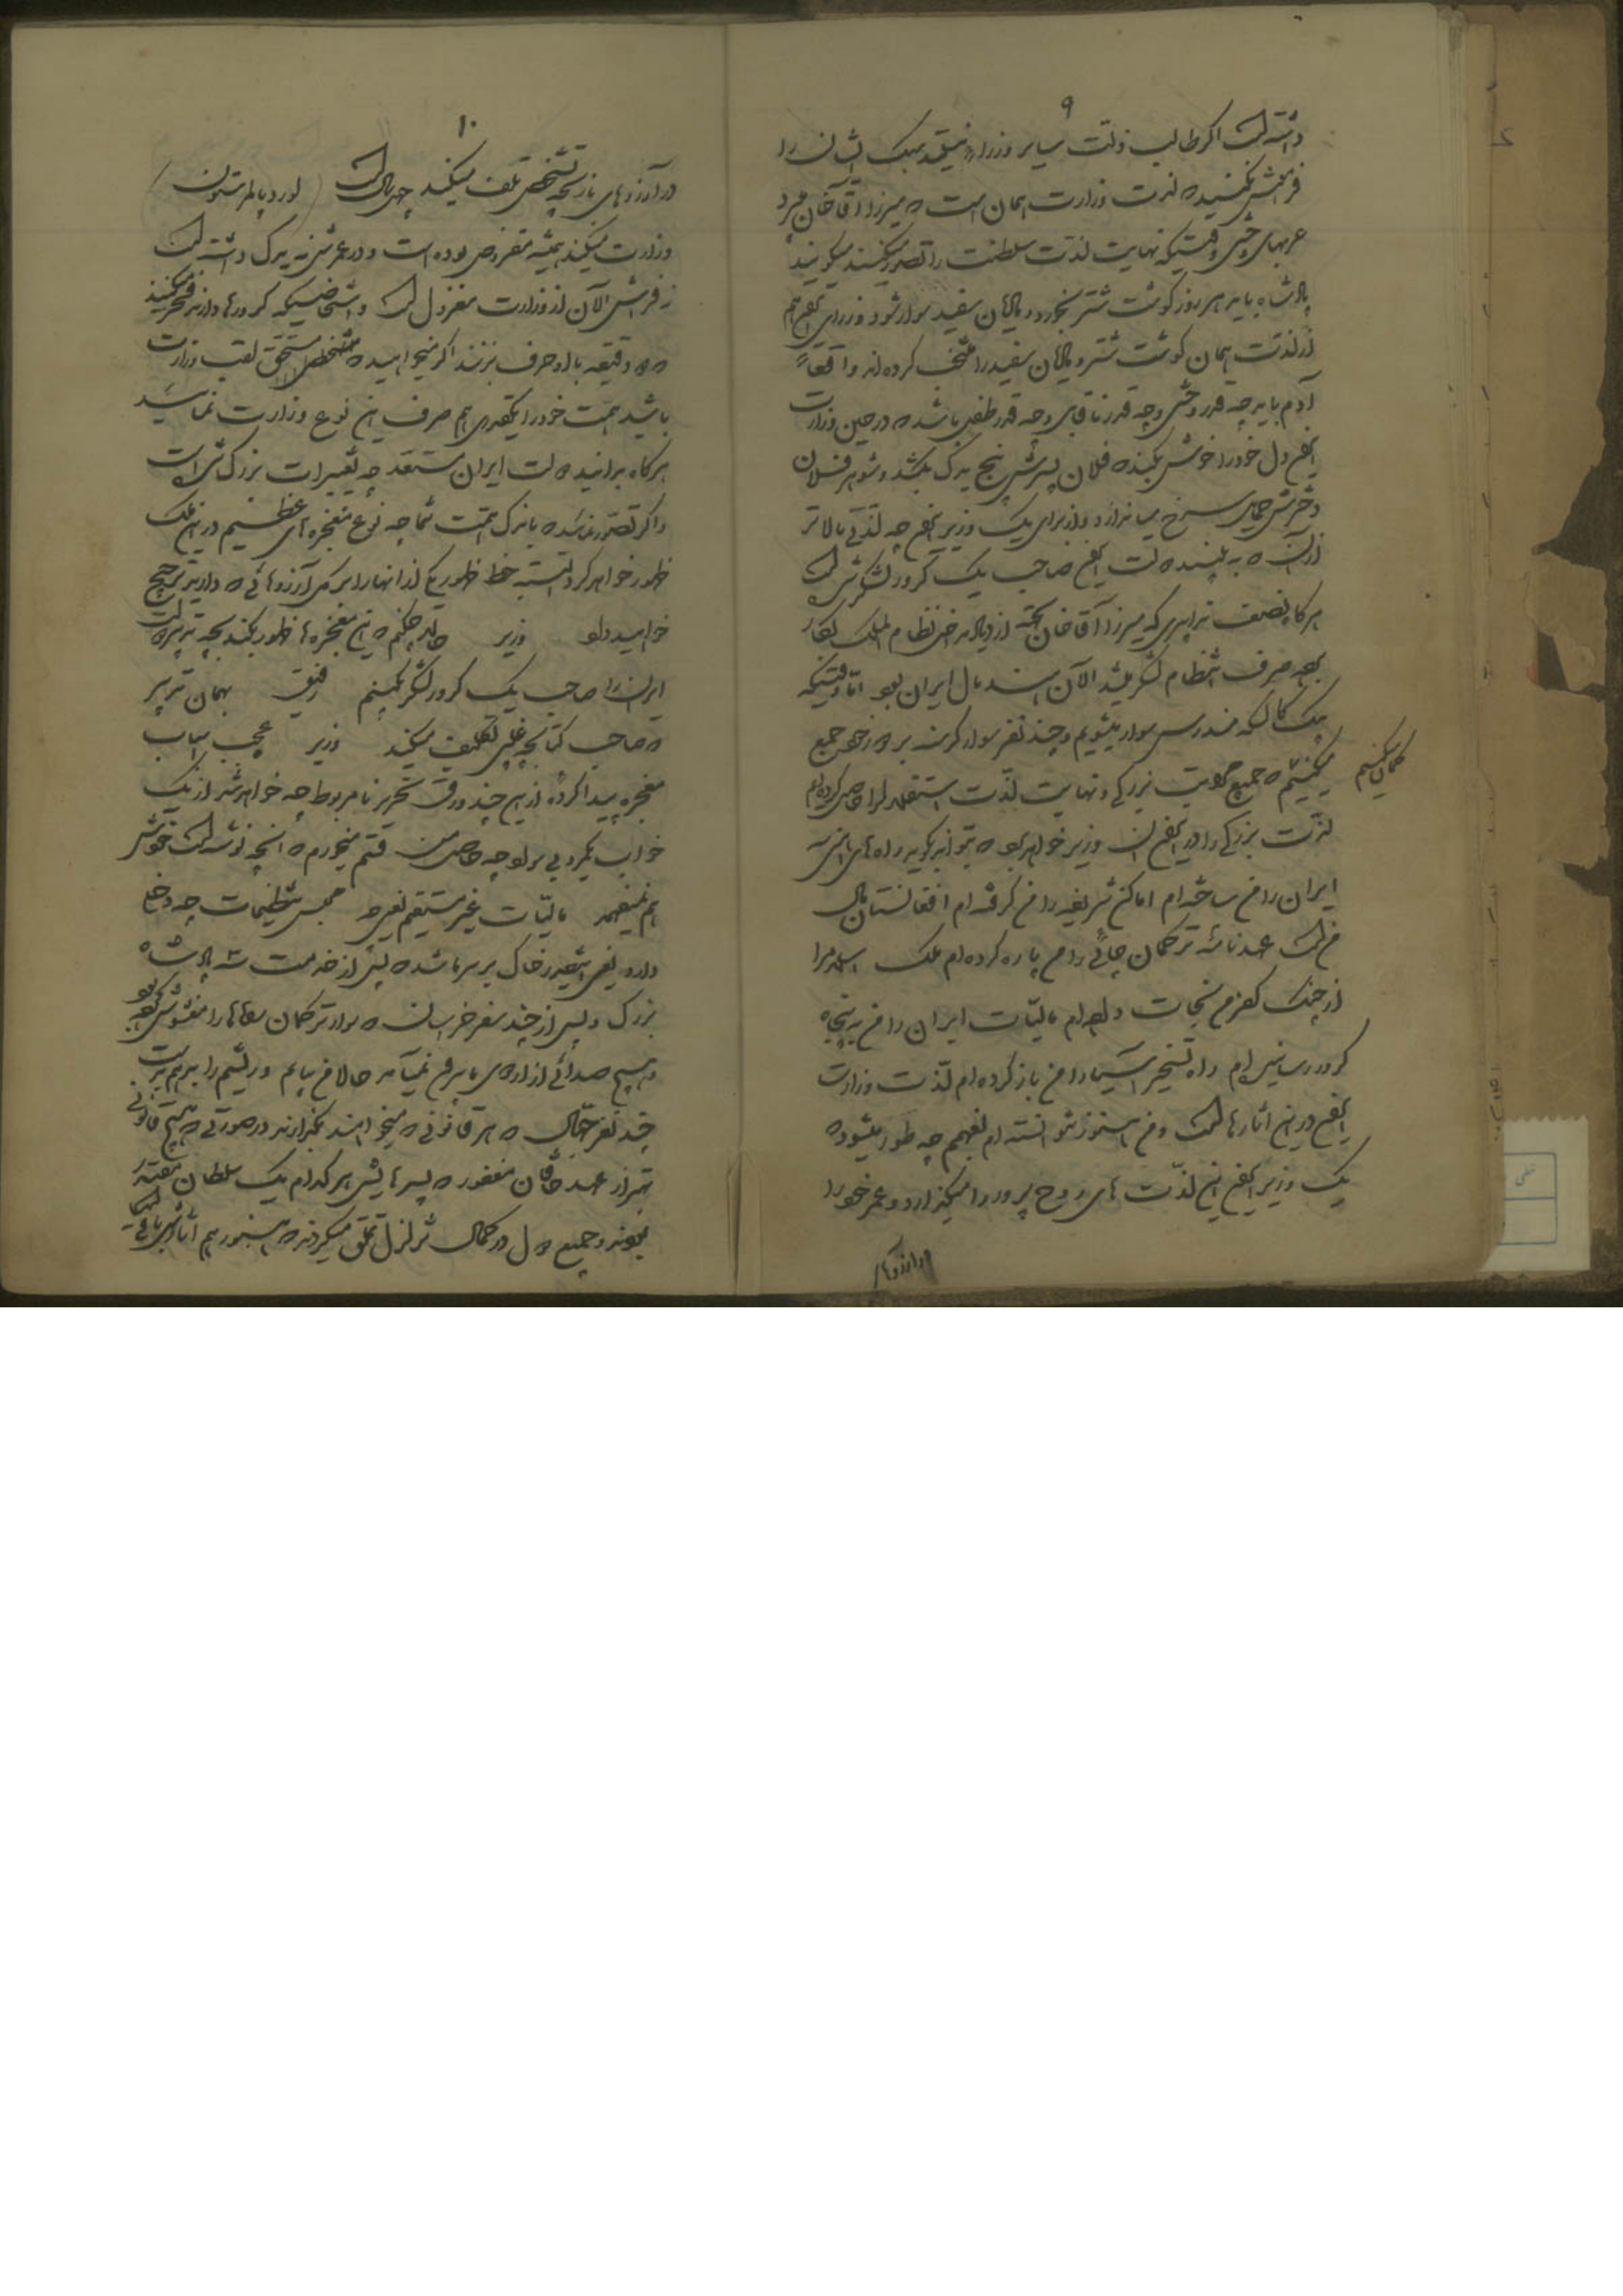 ۹
داشته است اگر طالب ذلت سایر وزراء نیستید سبک ایشان را
فراموش بکنید لذت وزارت همان است که میرزا آقا خان میبرد
عربهای وحشی وقتیکه نهایت لذت سلطنت را تصور میکنند میگویند
پادشاه باید هر روز گوشت شتر بخورد و پالان سفید سوار شود وزرای هم
از لذت همان گوشت شتر و پالان سفید را منتخب کرده‌اند واقعاً
آدم باید چه قدر وحشی و چه قدر ناقابل و چه قدر طفل باشد که در حین وزارت
دل خود را خوش بکند که فلان پسرش پنج یدک بکشد و شوهر فلان
دخترش حمایل سرخ بیاندازد و از برای یک وزیر چه لذتی بالاتر
از آن که ببیند دولت صاحب یک کرور لشکر شده است
هرگاه نصف تدابیری که میرزا آقا خان بجهة نظام الملک بکار
صرف انتظام لشکر میشد الآن هند مال ایران بود اما وقتیکه
یک کالسکه مندرس سوار میشویم و چند نفر سوار گرسنه بر دور خود جمع
میکنیم که جمیع بزرگی و نهایت لذت استقلال را حاصل کرده‌ایم
گمان میکنیم
لذت بزرگی را در وزیر خواهد بود که بتواند بگوید راه‌های
ایران را من ساخته‌ام اماکن شریفه را من گرفته‌ام افغانستان مال
من است عهدنامه ترکمان چائی را من پاره کرده‌ام ملک اسلام را
از چنگ کفر من نجات داده‌ام مالیات ایران را من به پنجاه
کرور رسانیده‌ام راه تسخیر آسیا را من باز کرده‌ام لذت وزارت
در این آثارهاست و من هنوز نتوانسته‌ام بفهمم چه طور میشود که
یک وزیر این لذت‌های روح پرور را میگذارد و عمر خود را
در آرزوهای
۱۰
در آرزوهای بازیچه تشخص تلف میکند چهل سال است (لورد پالمرستون)
وزارت میکند همیشه مقروض بوده است و در عمرش نه یدک داشته است
نه فراش الآن از وزارت معزول است و اشخاصیکه کرورها دارند فخر میکنند
که دو دقیقه با او حرف بزنند اگر میخواهید که مستحق لقب وزارت
باشید همت خود را اینقدر هم صرف این نوع وزارت نمائید
هرگاه بدانید دولت ایران مستعد چه تغییرات بزرگ شده است
و اگر تصور نمائید که باندک همت شما چه نوع معجزه‌های عظیم در این ملک
ظهور خواهد کرد البته حظ ظهور یکی از آنها را بر کل آرزوهائی که دارید ترجیح
خواهید داد وزیر چکنم که این معجزه‌ها ظهور بکند بچه تدبیر دولت
ایران را صاحب یک کرور لشکر بکنیم رفیق بهمان تدبیر
که صاحب کتابچه غیبی تکلیف میکند وزیر عجب اسباب
معجزه پیدا کرده از این چند ورق تحریر نامربوط چه خواهد شد از یک
خواب یکمرد بی سواد چه حاصل من قسم میخورم که آنچه نوشته است خودش
هم نمیفهمد مالیات غیر مستقیم یعنی چه مجلس تنظیمات چه وضع
دارد یعنی اینقدر خاک بر سر ما شده که پس از خدمت سه پادشاه
بزرگ و پس از چند سفر خراسان که سوار ترکمان را مغشوش کرده بود
و هیچ صدائی از اردوی ما بیرون نمی‌آمد حالا من بیایم و ریشم را بدهم بدست
چند نفر جهال که هر قانونی که میخواهند بگذارند در صورتی که هیچ قانونی
بهتر از عهد خاقان مغفور که پسرهایش هر کدام یک سلطان مقتدر
بودند و جمیع دول در کمال تزلزل تملق میکردند که هنوز هم آثار